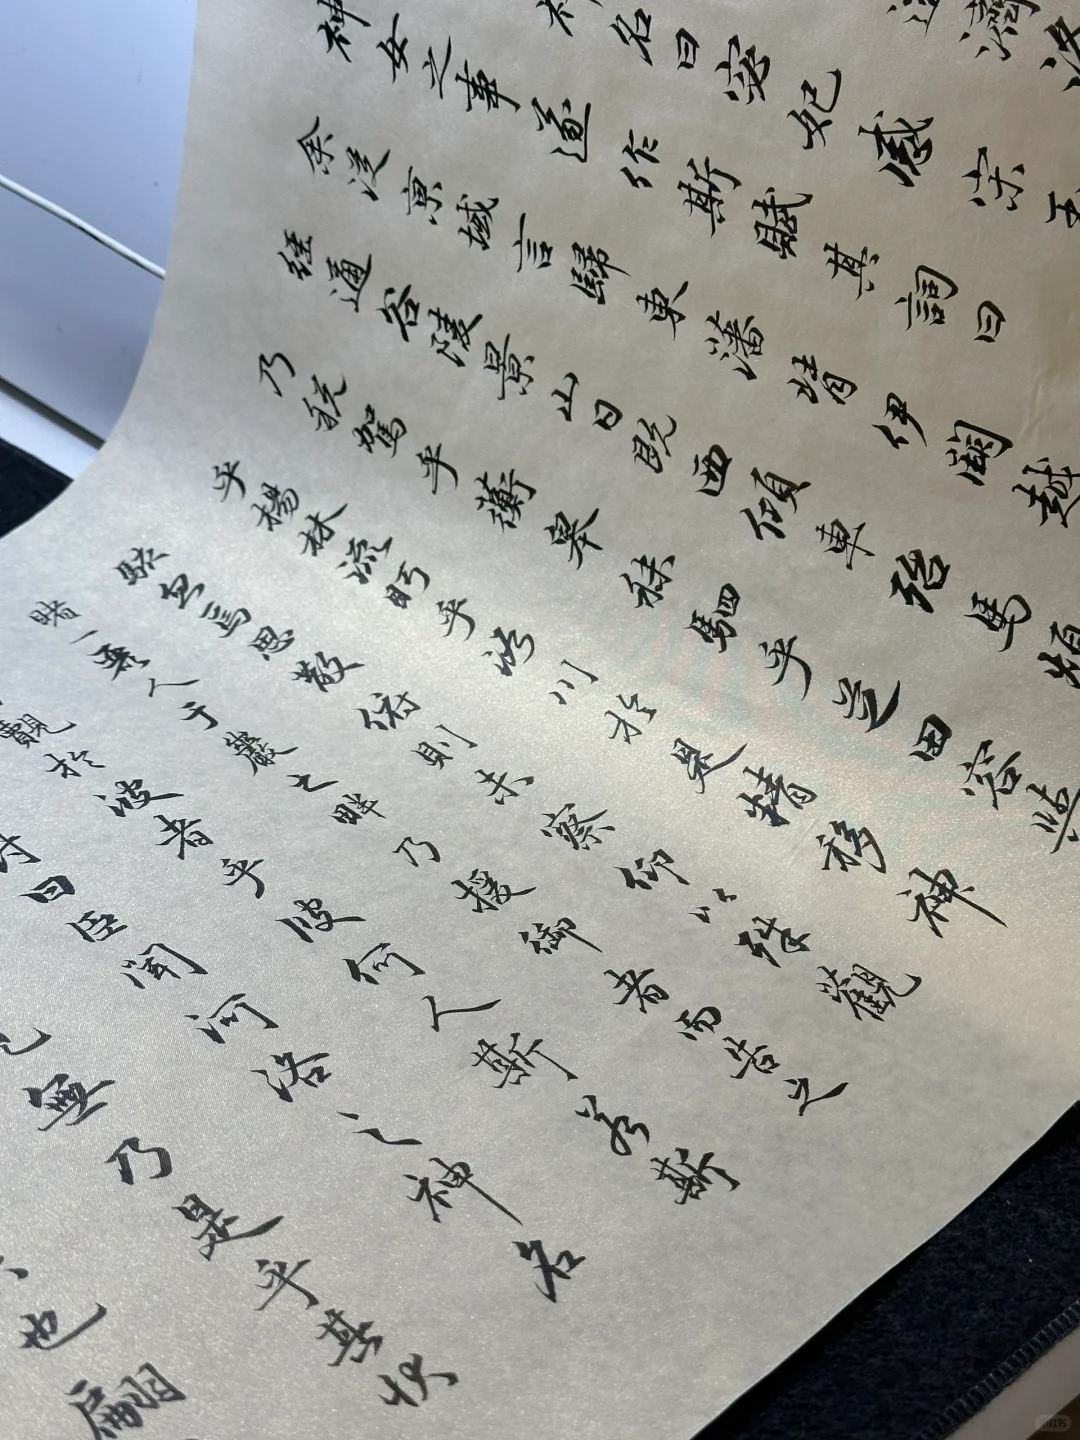 還濟洛
神名曰宓妃感宋玉
神女之事遂作斯賦其詞曰
余從京域言歸東藩背伊闕越
經通谷陵景山日既西傾車殆馬煩
乃税駕乎蘅皋秣駟乎芝田容與
乎楊林流眄乎洛川於是精移神
駭忽焉思散俯則未察仰以殊觀
睹一麗人于巖之畔乃援御者而告之
覿於彼者乎彼何人斯若斯
曰臣聞河洛之神名
無乃是乎其狀
也翩